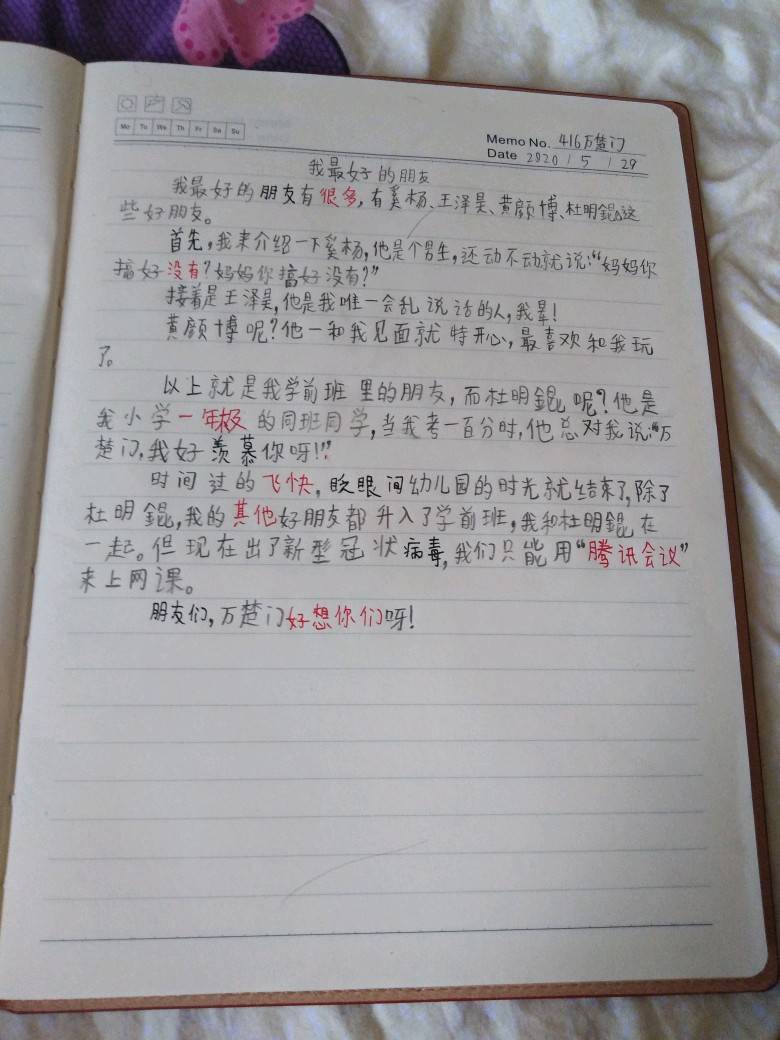 Mo Tu We Th Fr Sa Su
Memo No. 416万楚门
Date 2020 / 5 / 29
我最好的朋友
我最好的朋友有很多,有奚杨、王泽昊、黄颜博、杜明錕这
些好朋友。
首先,我来介绍一下奚杨,他是个男生,还动不动就说:“妈妈你
搞好没有?妈妈你搞好没有?”
接着是王泽昊,他是我唯一会乱说话的人,我晕!
黄颜博呢?他一和我见面就特开心,最喜欢和我玩
了。
以上就是我学前班里的朋友,而杜明錕呢?他是
我小学一年级的同班同学,当我考一百分时,他总对我说:“万
楚门,我好羡慕你呀!”
时间过的飞快,眨眼间幼儿园的时光就结束了,除了
杜明錕,我的其他好朋友都升入了学前班,我和杜明錕在
一起。但现在出了新型冠状病毒,我们只能用“腾讯会议”
来上网课。
朋友们,万楚门好想你们呀!